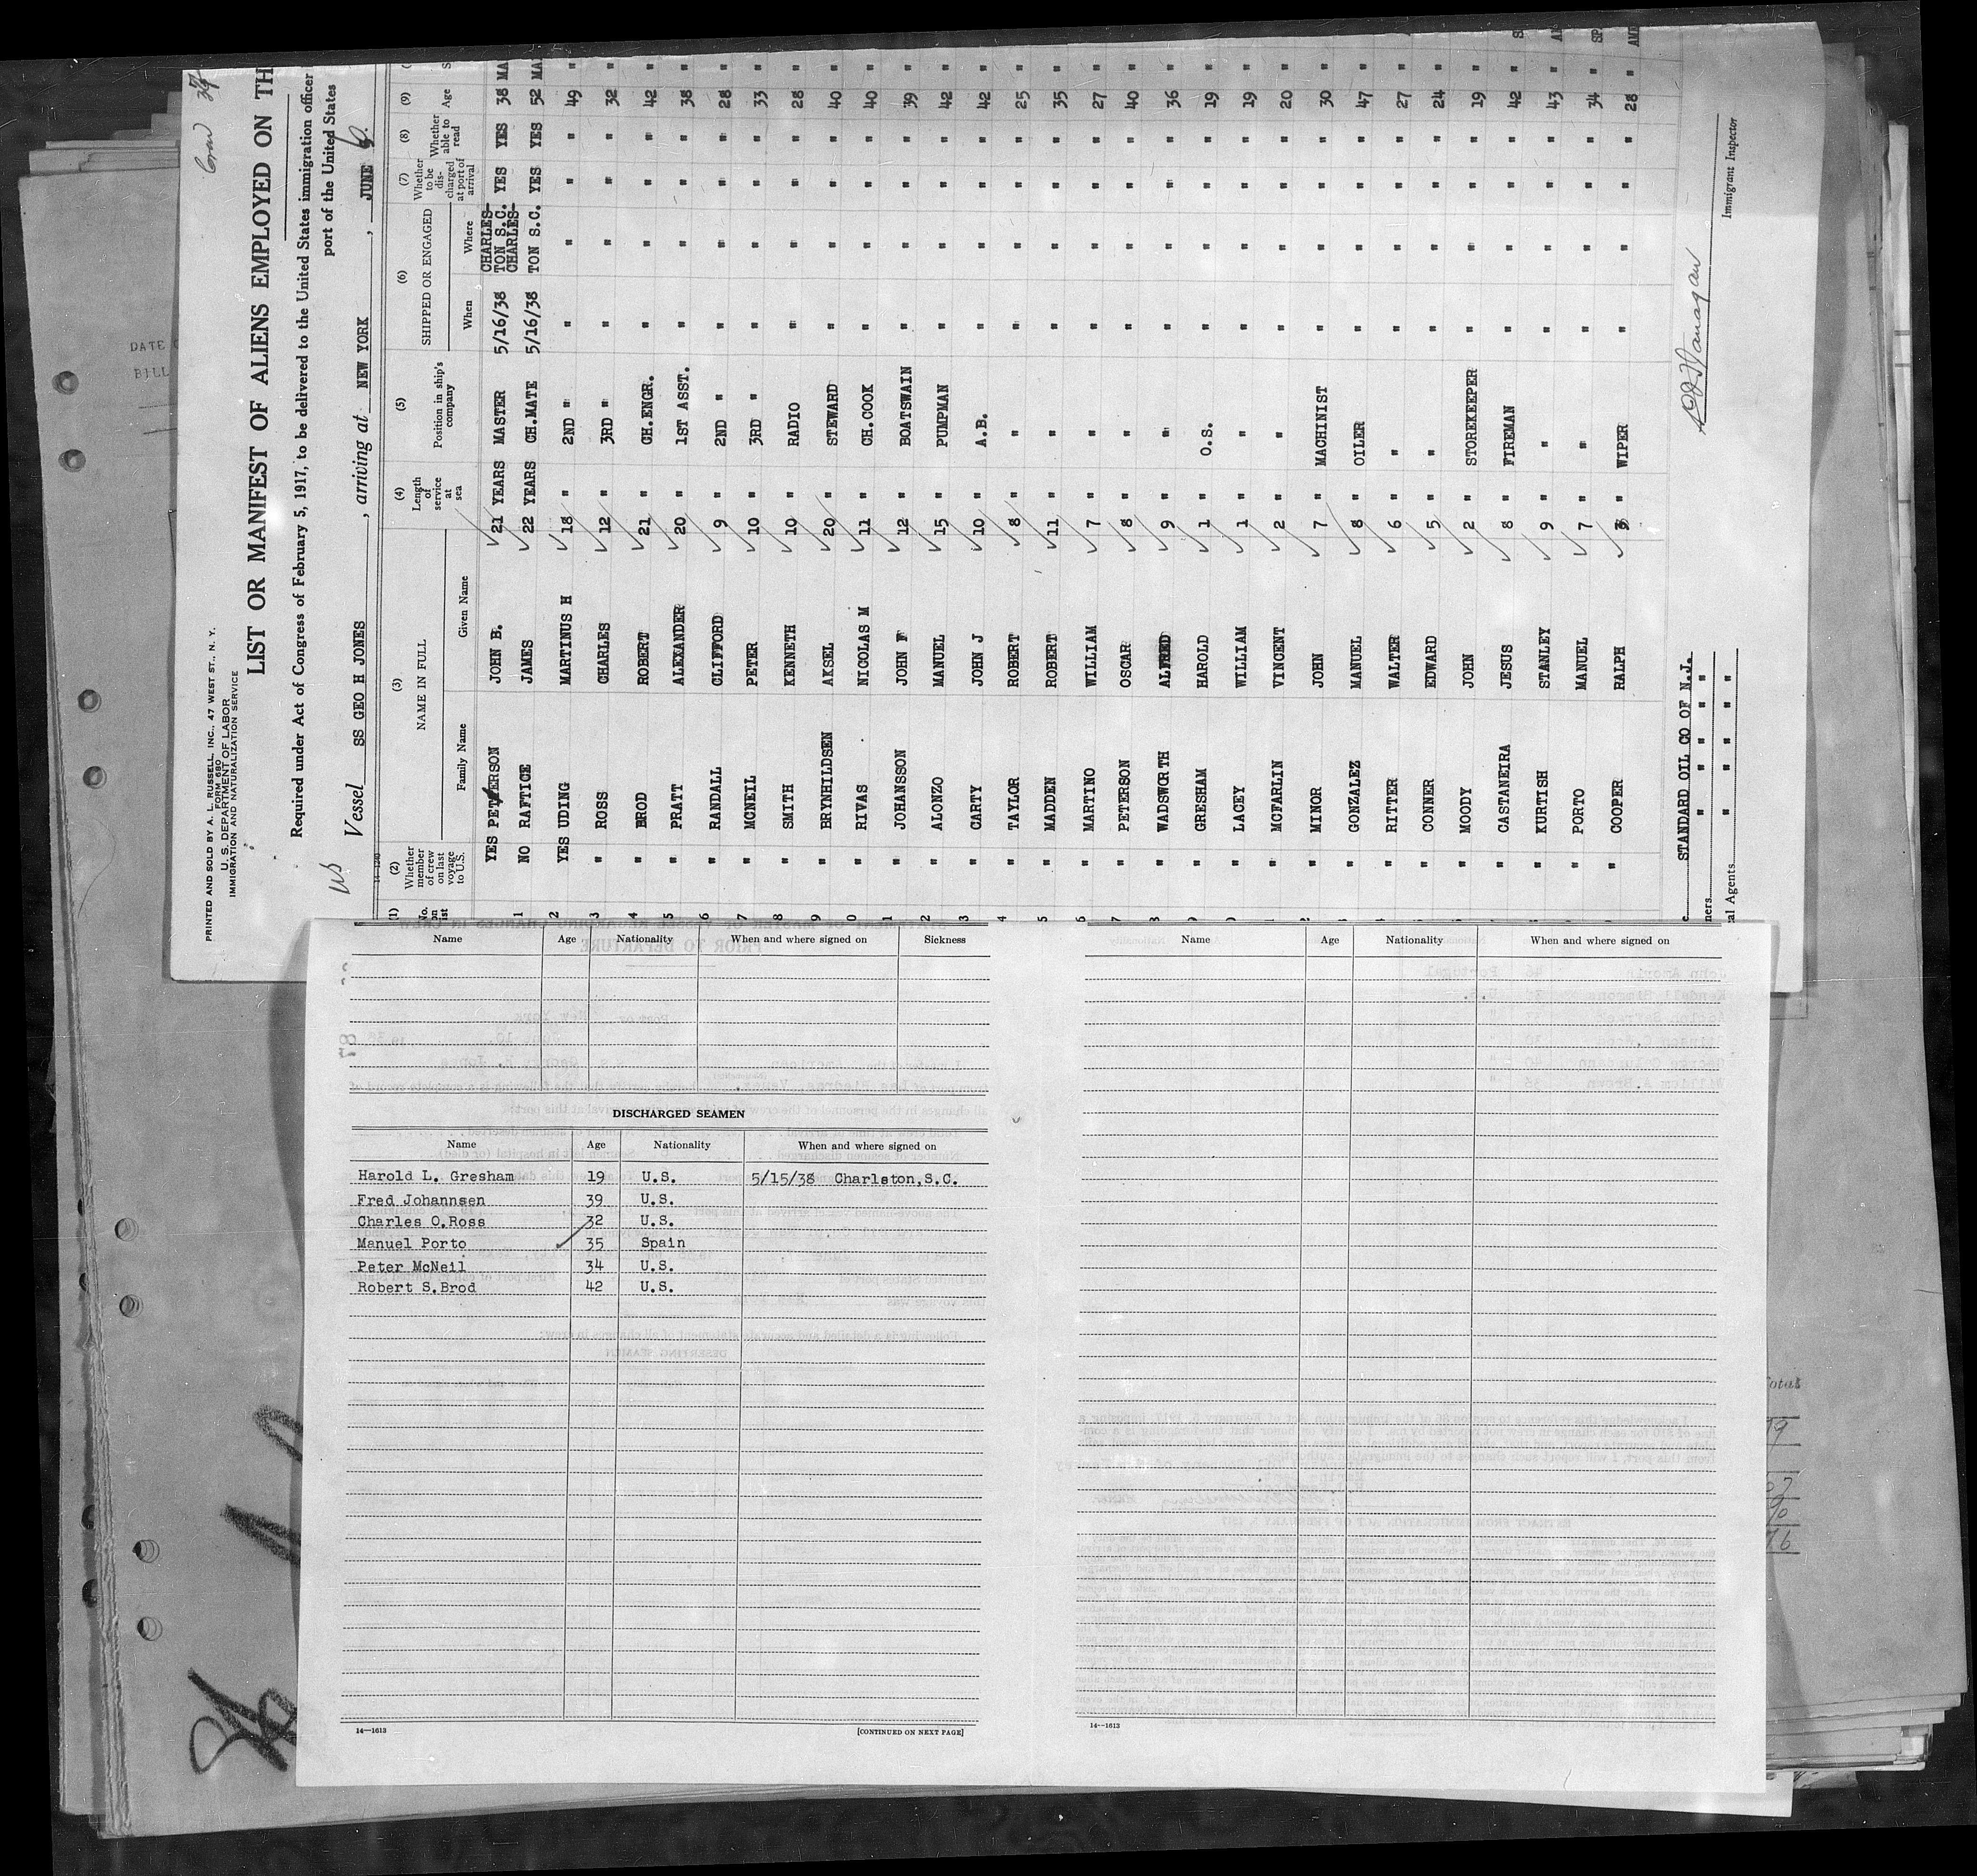 Crew
PRINTED AND SOLD BY A. L. RUSSELL, INC., 47 WEST ST., N. Y.
FORM 680
U. S. DEPARTMENT OF LABOR
IMMIGRATION AND NATURALIZATION SERVICE
LIST OR MANIFEST OF ALIENS EMPLOYED ON TH
Required under Act of Congress of February 5, 1917, to be delivered to the United States immigration officer
port of the United States
Vessel SS GEO H JONES, arriving at NEW YORK, JUNE
14-1240
(1) (2) (3) (4) (5) (6) (7) (8) (9)
No. on list
Whether member of crew on last voyage to U.S.
NAME IN FULL
Family Name Given Name
Length of service at sea
Position in ship's company
SHIPPED OR ENGAGED
When Where
Whether to be discharged at port of arrival
Whether able to read
Age
YES PETERSON JOHN B. 21 YEARS MASTER 5/16/38 CHARLES-TON S.C. YES YES 38 MA
1 NO RAFTICE JAMES 22 YEARS CH.MATE 5/16/38 CHARLES-TON S.C. YES YES 52 MA
2 YES UDING MARTINUS H 18 " 2ND " " " " " 49 "
3 " ROSS CHARLES 12 " 3RD " " " " " 32 "
4 " BROD ROBERT 21 " CH.ENGR. " " " " 42 "
5 " PRATT ALEXANDER 20 " 1ST ASST. " " " " 38 "
6 " RANDALL CLIFFORD 9 " 2ND " " " " " 28 "
7 " MCNEIL PETER 10 " 3RD " " " " " 33 "
8 " SMITH KENNETH 10 " RADIO " " " " 28 "
9 " BRYNHILDSEN AKSEL 20 " STEWARD " " " " 40 "
0 " RIVAS NICOLAS M 11 " CH.COOK " " " " 40 "
1 " JOHANSSON JOHN F 12 " BOATSWAIN " " " " 39 "
2 " ALONZO MANUEL 15 " PUMPMAN " " " " 42 "
3 " CARTY JOHN J 10 " A.B. " " " " 42 "
4 " TAYLOR ROBERT 8 " " " " " " 25 "
5 " MADDEN ROBERT 11 " " " " " " 35 "
6 " MARTINO WILLIAM 7 " " " " " " 27 "
7 " PETERSON OSCAR 8 " " " " " " 40 "
8 " WADSWORTH ALFRED 9 " " " " " " 36 "
9 " GRESHAM HAROLD 1 " O.S. " " " " 19 "
0 " LACEY WILLIAM 1 " " " " " " 19 "
" MCFARLIN VINCENT 2 " " " " " " 20 "
" MINOR JOHN 7 " MACHINIST " " " " 30 "
" GONZALEZ MANUEL 8 " OILER " " " " 47 "
" RITTER WALTER 6 " " " " " " 27 "
" CONNER EDWARD 5 " " " " " " 24 "
" MOODY JOHN 2 " STOREKEEPER " " " " 19 "
" CASTANEIRA JESUS 8 " FIREMAN " " " " 42 " S
" KURTISH STANLEY 9 " " " " " " 43 " AM
" PORTO MANUEL 7 " " " " " " 34 " SP
" COOPER RALPH 3 " WIPER " " " " 28 " AME
STANDARD OIL CO OF N.J.
ners " " " " "
al Agents " " " " "
Immigrant Inspector
DATE
BILL
Name Age Nationality When and where signed on Sickness
DISCHARGED SEAMEN
Name Age Nationality When and where signed on
Harold L. Gresham 19 U.S. 5/15/38 Charlston,S.C.
Fred Johannsen 39 U.S.
Charles O.Ross 32 U.S.
Manuel Porto 35 Spain
Peter McNeil 34 U.S.
Robert S.Brod 42 U.S.
14—1613
[CONTINUED ON NEXT PAGE]
Name Age Nationality When and where signed on
14—1613
Total